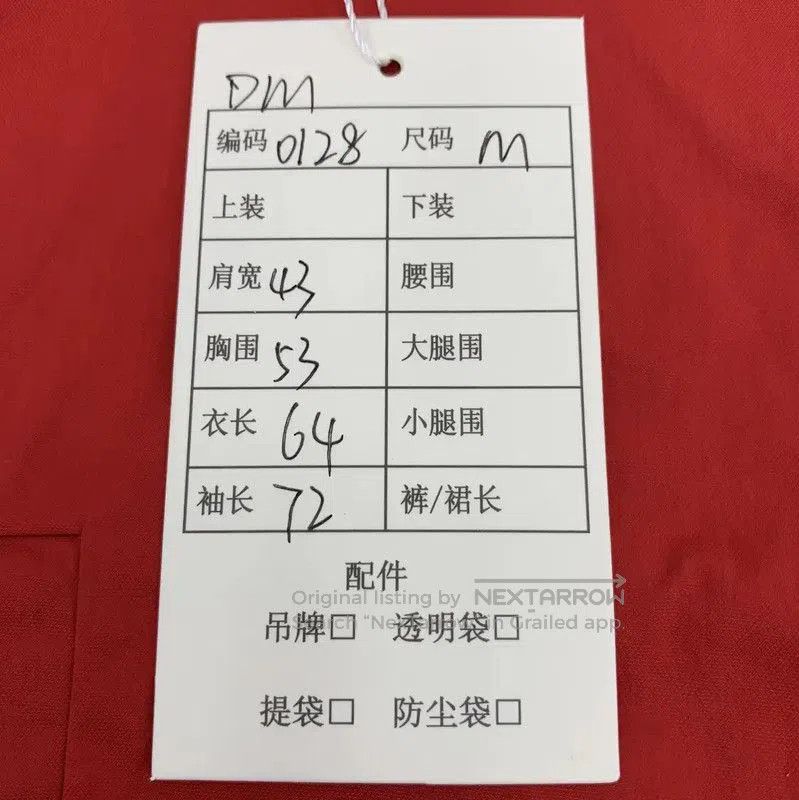 DM
编码 0128 尺码 M
上装 下装
肩宽 43 腰围
胸围 53 大腿围
衣长 64 小腿围
袖长 72 裤/裙长
配件
Original listing by NEXTARROW
吊牌□ 透明袋□
Search "NextArrow" in Grailed app.
提袋□ 防尘袋□